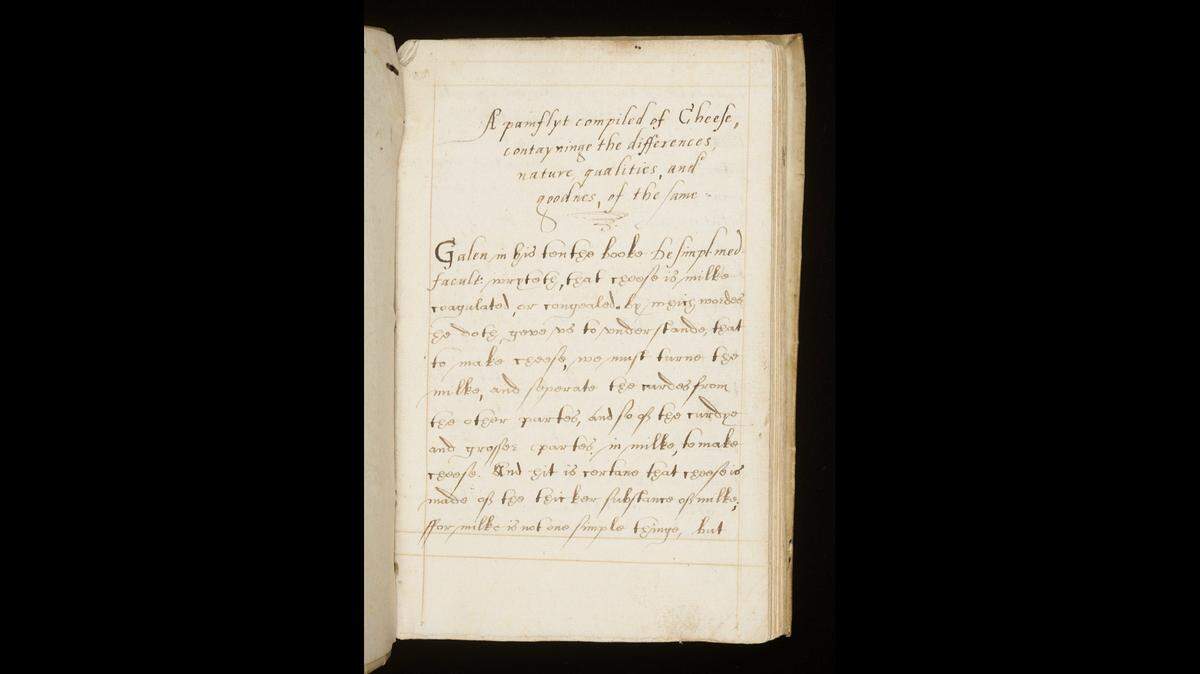 A pamflyt compiled of Cheese,
contayninge the differences,
nature, qualities, and
goodnes, of the same
Galen in his tenthe booke De simpl. med.
facult. wryteth, that cheese is milke
coagulated, or congealed. by which wordes
he doth geve vs to vnderstande, that
to make cheese, we must turne the
milke, and seperate the curdes from
the other partes, and so of the curdye
and grosser partes in milke, to make
cheese. And hit is certane that cheese is
made of the thicker substance of milke;
ffor milke is not one simple thinge, but